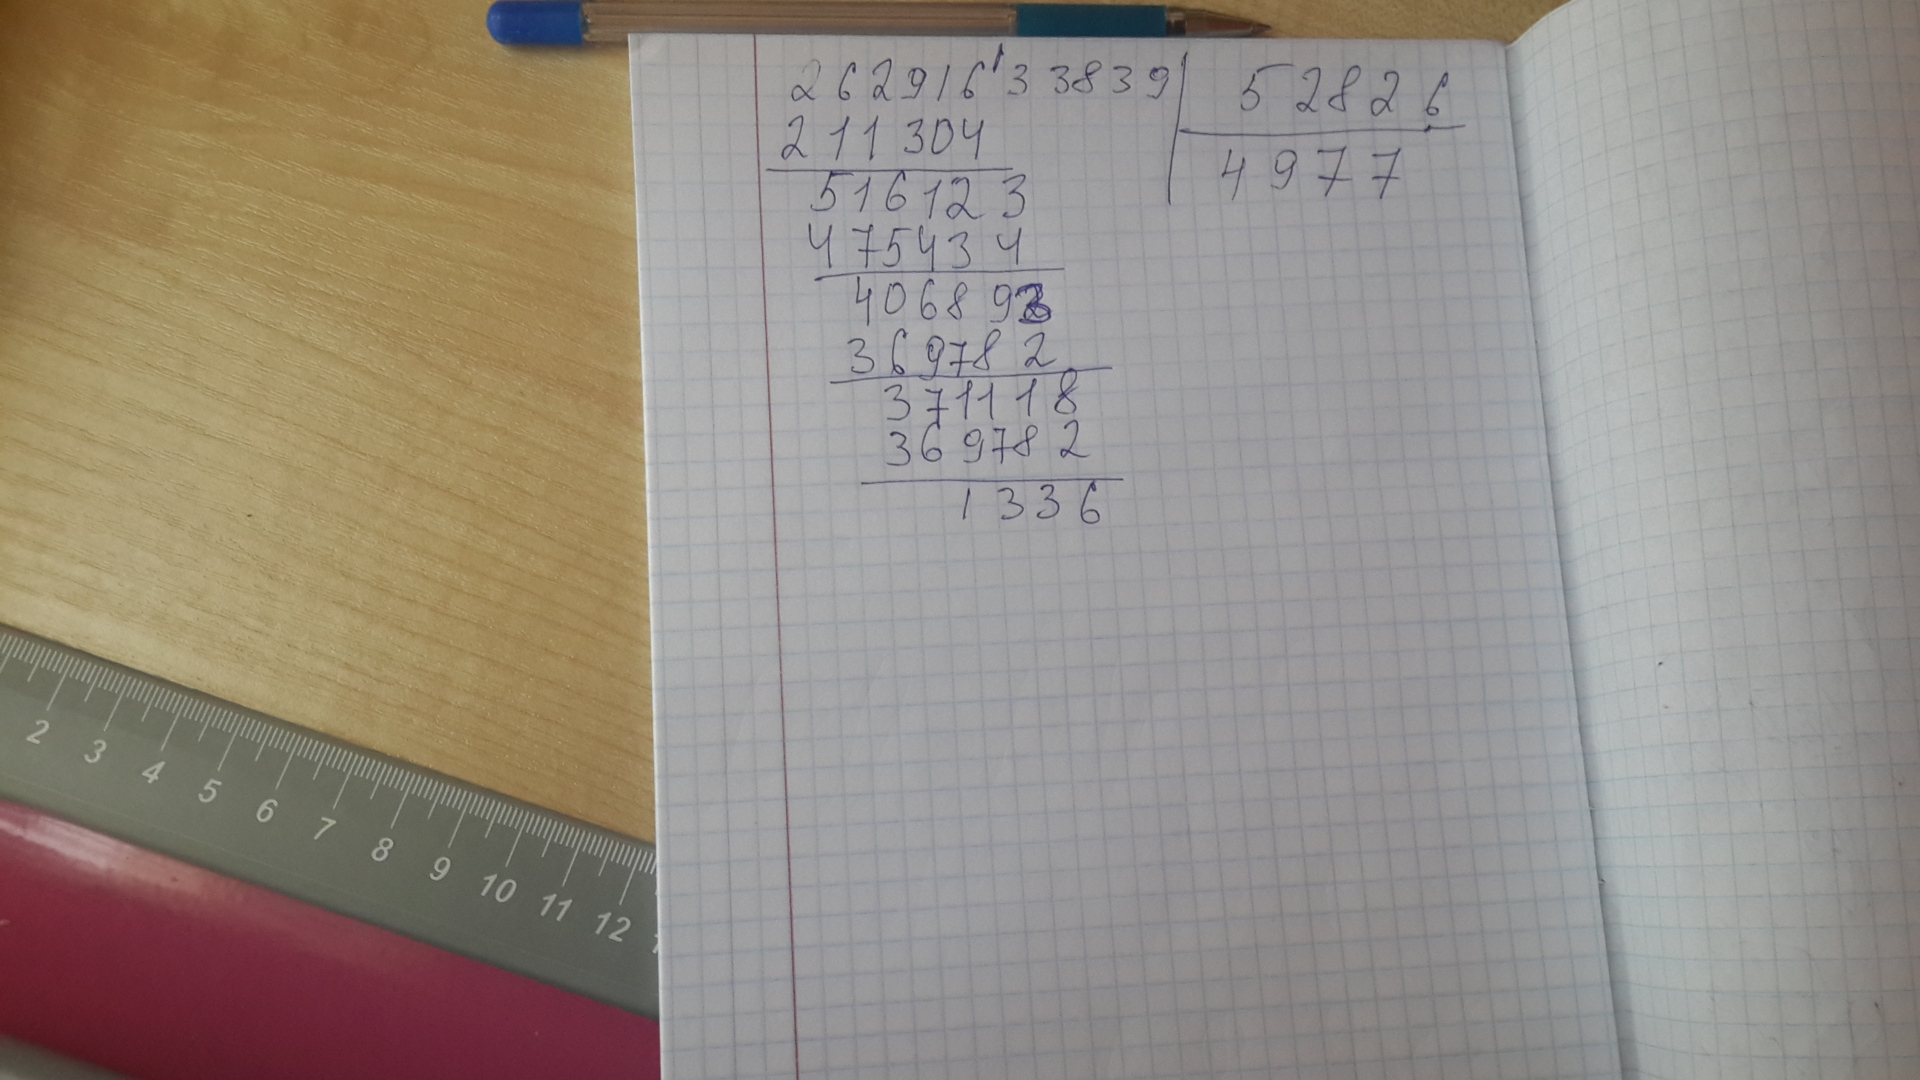 262916'33839 52826
211304 4977
516123
475434
406893
369782
371118
369782
1336
2 3 4 5 6 7 8 9 10 11 12